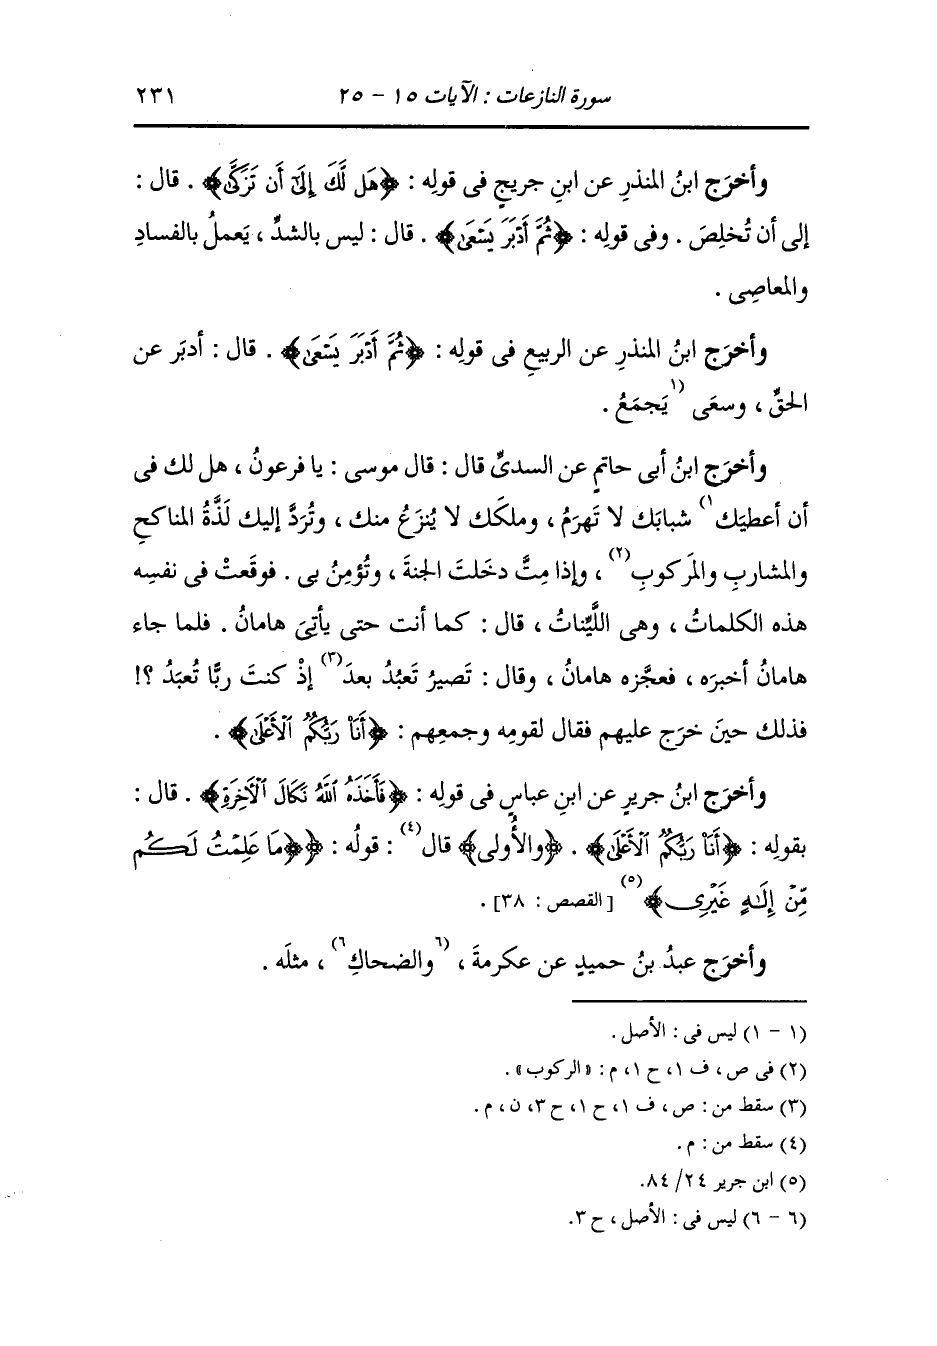 سورة النازعات : الآيات ١٥ - ٢٥ ٢٣١
وأخرَج ابنُ المنذرِ عن ابنِ جريجٍ فى قولِه : ﴿هَل لَّكَ إِلَىٰٓ أَن تَزَكَّىٰ﴾ . قال :
إلى أن تُخلِصَ . وفى قولِه : ﴿ثُمَّ أَدْبَرَ يَسْعَىٰ﴾ . قال : ليس بالشدِّ ، يَعملُ بالفسادِ
والمعاصِى .
وأخرَج ابنُ المنذرِ عن الربيعِ فى قولِه : ﴿ثُمَّ أَدْبَرَ يَسْعَىٰ﴾ . قال : أدبَر عن
الحقِّ ، وسعَى (١يَجمَعُ .
وأخرَج ابنُ أبى حاتمٍ عن السدىِّ قال : قال موسى : يا فرعونُ ، هل لك فى
أن أعطيَك١) شبابَك لا تَهرَمُ ، وملكَك لا يُنزَعُ منك ، وتُرَدَّ إليك لَذَّةُ المناكحِ
والمشاربِ والمَركوبِ(٢) ، وإذا مِتَّ دخَلتَ الجنةَ ، وتُؤمِنُ بى . فوقَعتْ فى نفسِه
هذه الكلماتُ ، وهى اللَّيِّناتُ ، قال : كما أنت حتى يأتِىَ هامانُ . فلما جاء
هامانُ أخبرَه ، فعجَّزه هامانُ ، وقال : تَصيرُ تَعبُدُ بعدَ(٣) إذْ كنتَ ربًّا تُعبَدُ ؟!
فذلك حينَ خرَج عليهم فقال لقومِه وجمعِهم : ﴿أَنَا۠ رَبُّكُمُ ٱلْأَعْلَىٰ﴾ .
وأخرَج ابنُ جريرٍ عن ابنِ عباسٍ فى قولِه : ﴿فَأَخَذَهُ ٱللَّهُ نَكَالَ ٱلْأَخِرَةِ﴾ . قال :
بقولِه : ﴿أَنَا۠ رَبُّكُمُ ٱلْأَعْلَىٰ﴾ . ﴿والأُولى﴾ قال(٤) : قولُه : ﴿﴿مَا عَلِمْتُ لَكُم
مِّنْ إِلَٰهٍ غَيْرِى﴾(٥) [القصص : ٣٨] .
وأخرَج عبدُ بنُ حميدٍ عن عكرمةَ ، (٦والضحاكِ٦) ، مثلَه .
(١ - ١) ليس فى : الأصل .
(٢) فى ص ، ف ١، ح ١، م : « الركوب » .
(٣) سقط من : ص ، ف ١، ح ١، ح ٣، ن ، م .
(٤) سقط من : م .
(٥) ابن جرير ٢٤/ ٨٤.
(٦ - ٦) ليس فى : الأصل ، ح ٣.